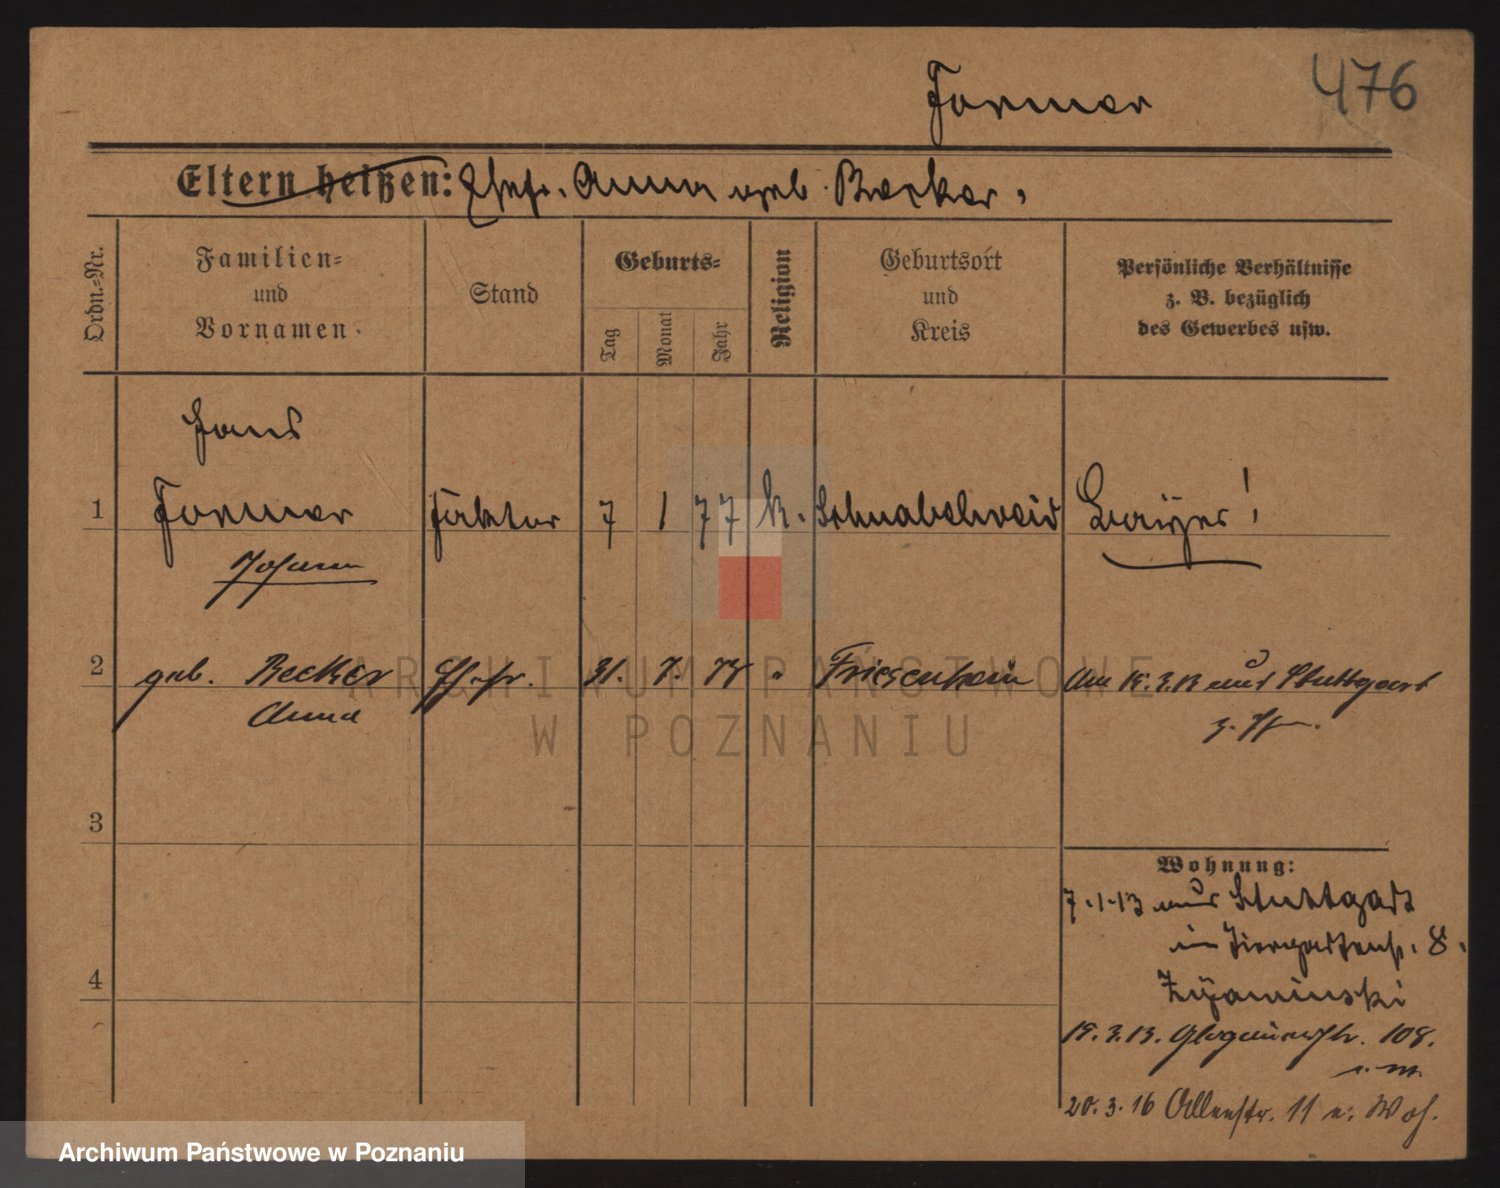 476
Former
Eltern heißen: Ehefr. Anna geb. Becker.
Ordn.-Nr.
Familien-
und
Vornamen
Stand
Geburts-
Tag
Monat
Jahr
Religion
Geburtsort
und
Kreis
Persönliche Verhältnisse
z. B. bezüglich
des Gewerbes usw.
Hans
1 Former Faktor 7 1 77 k. Schnabelwaid Bayer!
Johann
2 geb. Becker Ehefr. 31. 7. 78 " Friesenheim Am 18.3.13 aus Stuttgart
Anna
3
Wohnung:
7.1.13 aus Stuttgart
in Tiergartenstr. 8.
4
19.3.13. Glogauerstr. 108.
20.3.16 Allenstr. 11 e. Woh.
ARCHIWUM PAŃSTWOWE
W POZNANIU
Archiwum Państwowe w Poznaniu